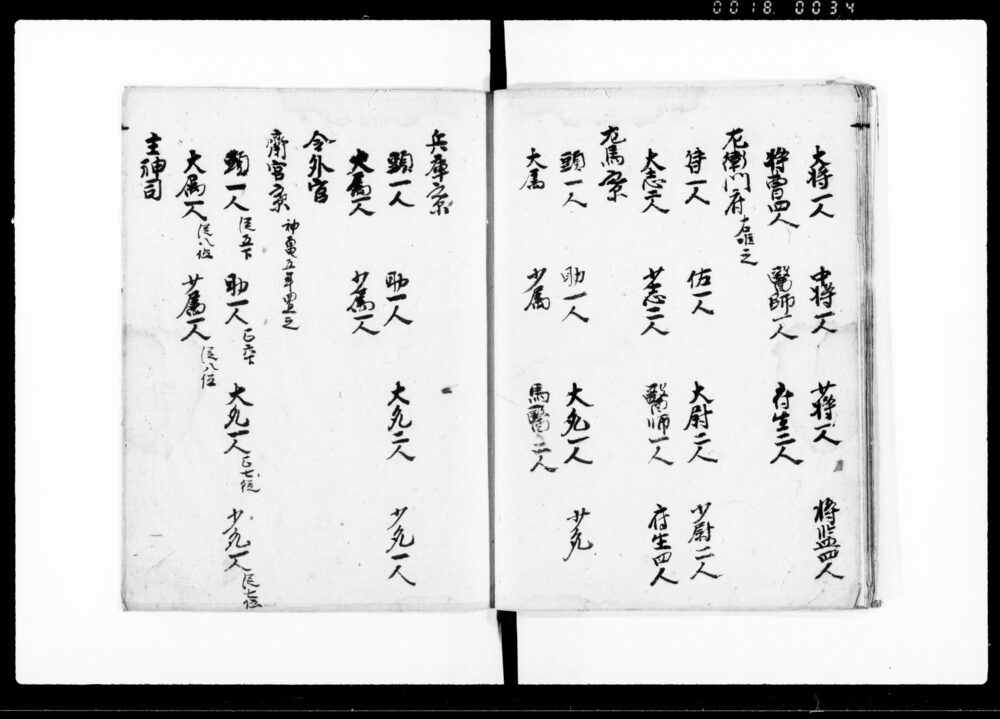 0018 0034
大将一人 中将一人 少将一人 将監四人
将曹四人 醫師一人 府生二人
左衛門府 右准之
督一人 佐一人 大尉二人 少尉二人
大志二人 少志二人 醫師一人 府生四人
左馬寮
頭一人 助一人 大允一人 少允
大属 少属 馬醫二人
兵庫寮
頭一人 助一人 大允二人 少允一人
大属一人 少属一人
令外官
齋宮寮 神亀五年置之
頭一人 従五下 助一人 正六下 大允一人 正七従 少允一人 従七位
大属一人 従八位 少属一人 従八位
主神司